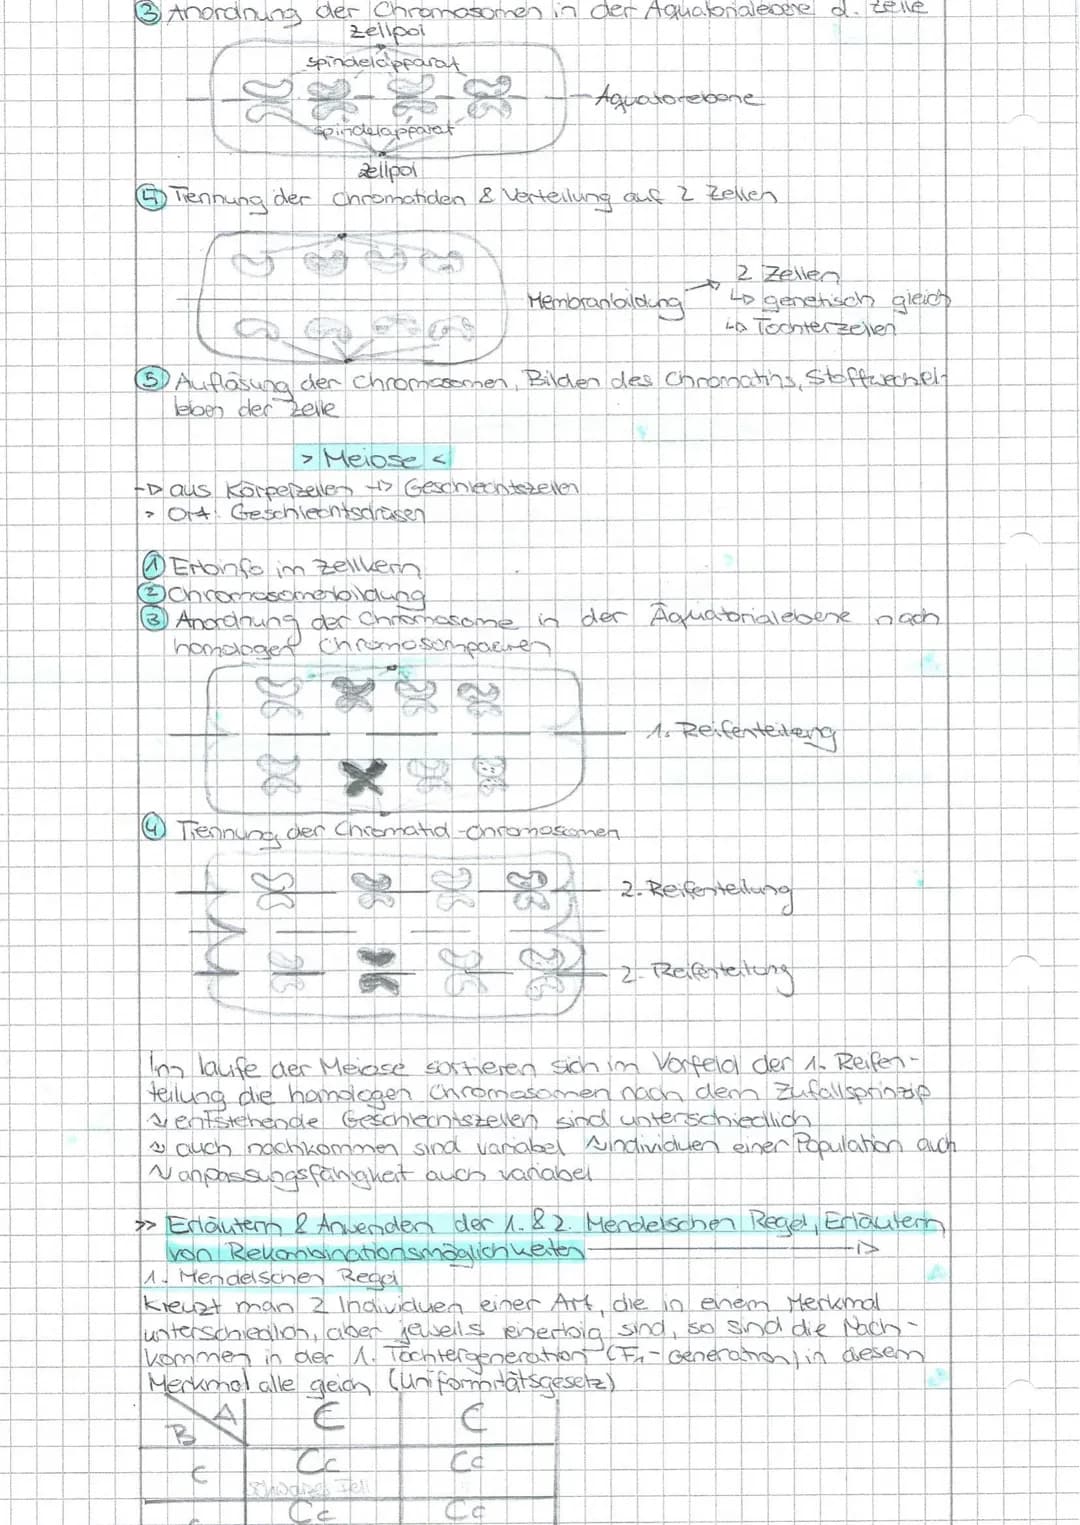 ③ Anordnung der Chromosomen in der Äquatorialebene d. Zelle
Zellpol
Spindelapparat
Äquatorebene
Spindelapparat
Zellpol
④ Trennung der Chromatiden & Verteilung auf 2 Zellen
Membranbildung → 2 Zellen
↳ genetisch gleich
↳ Tochterzellen
⑤ Auflösung der Chromosomen, Bilden des Chromatins, Stoffwechsel-
leben der Zelle
> Meiose <
→ aus Körperzellen → Geschlechtszellen
> Ort: Geschlechtsdrüsen
① Erbinfo im Zellkern
② Chromosomenbildung
③ Anordnung der Chromosome in der Äquatorialebene nach
homologen Chromosompaaren
1. Reifenteilung
④ Trennung der Chromatid-chromosomen
2. Reifenteilung
2. Reifenteilung
Im laufe der Meiose sortieren sich im Vorfeld der 1. Reifen-
teilung die homologen Chromosomen nach dem Zufallsprinzip
~ entstehende Geschlechtszellen sind unterschiedlich
~ auch nachkommen sind variabel ~ individuen einer Population auch
~ anpassungsfähigkeit auch variabel
>> Erläutern & Anwenden der 1. & 2. Mendelschen Regel, Erläutern
von Rekombinationsmöglichkeiten
1. Mendelschen Regel
Kreuzt man 2 Individuen einer Art, die in einem Merkmal
unterschiedlich, aber jeweils reinerbig sind, so sind die Nach-
kommen in der 1. Tochtergeneration (F₁-Generation) in diesem
Merkmal alle gleich (Uniformitätsgesetz)
A C C
B
c Cc Cc
schwarzes Fell
Cc Cc